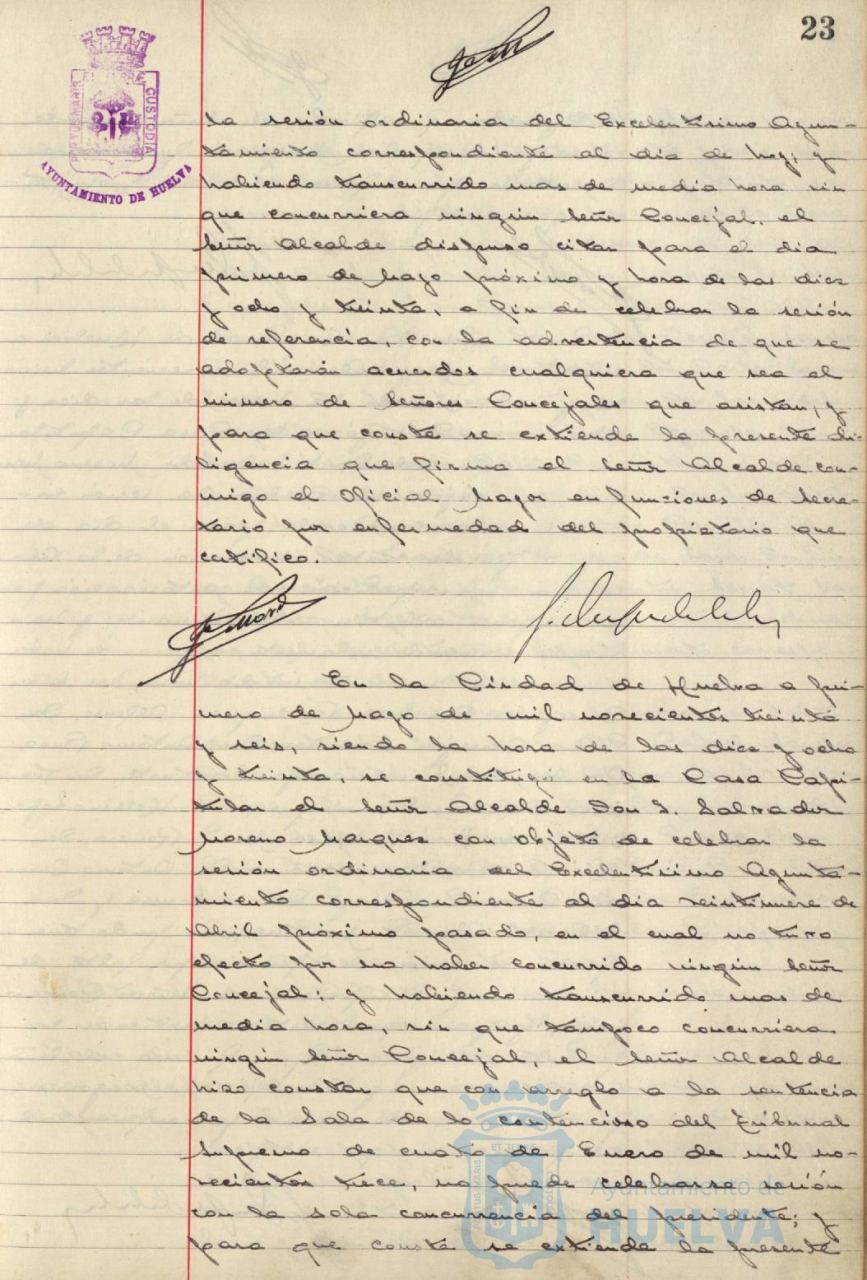 23
PORTUS MARIS
ET TERRE
CUSTODIA
AYUNTAMIENTO DE HUELVA
la sesión ordinaria del Excelentísimo Ayun-
tamiento correspondiente al dia de hoy; y
habiendo transcurrido mas de media hora sin
que concurriera ningún Señor Concejal, el
Señor Alcalde dispuso citar para el dia
primero de Mayo próximo y hora de las diez
y ocho y treinta, a fin de celebrar la sesión
de referencia, con la advertencia de que se
adoptarán acuerdos cualquiera que sea el
número de Señores Concejales que asistan, y
para que conste se extiende la presente di-
ligencia que firma el Señor Alcalde con-
migo el Oficial Mayor en funciones de Secre-
tario por enfermedad del propietario que
certifico.
En la Ciudad de Huelva a pri-
mero de Mayo de mil novecientos treinta
y seis, siendo la hora de las diez y ocho
y treinta, se constituyó en la Casa Capi-
tular el Señor Alcalde Don S. Salvador
Moreno Marquez con objeto de celebrar la
sesión ordinaria del Excelentísimo Ayunta-
miento correspondiente al dia veintinueve de
Abril próximo pasado, en el cual no tuvo
efecto por no haber concurrido ningún Señor
Concejal; y habiendo transcurrido mas de
media hora, sin que tampoco concurriera
ningún Señor Concejal, el Señor Alcalde
hizo constar que con arreglo a la sentencia
de la Sala de lo contencioso del Tribunal
Supremo de cuatro de Enero de mil no-
vecientos trece, no puede celebrarse sesión
con la sola concurrencia del presidente; y
para que conste se extiende la presente
Ayuntamiento de
HUELVA